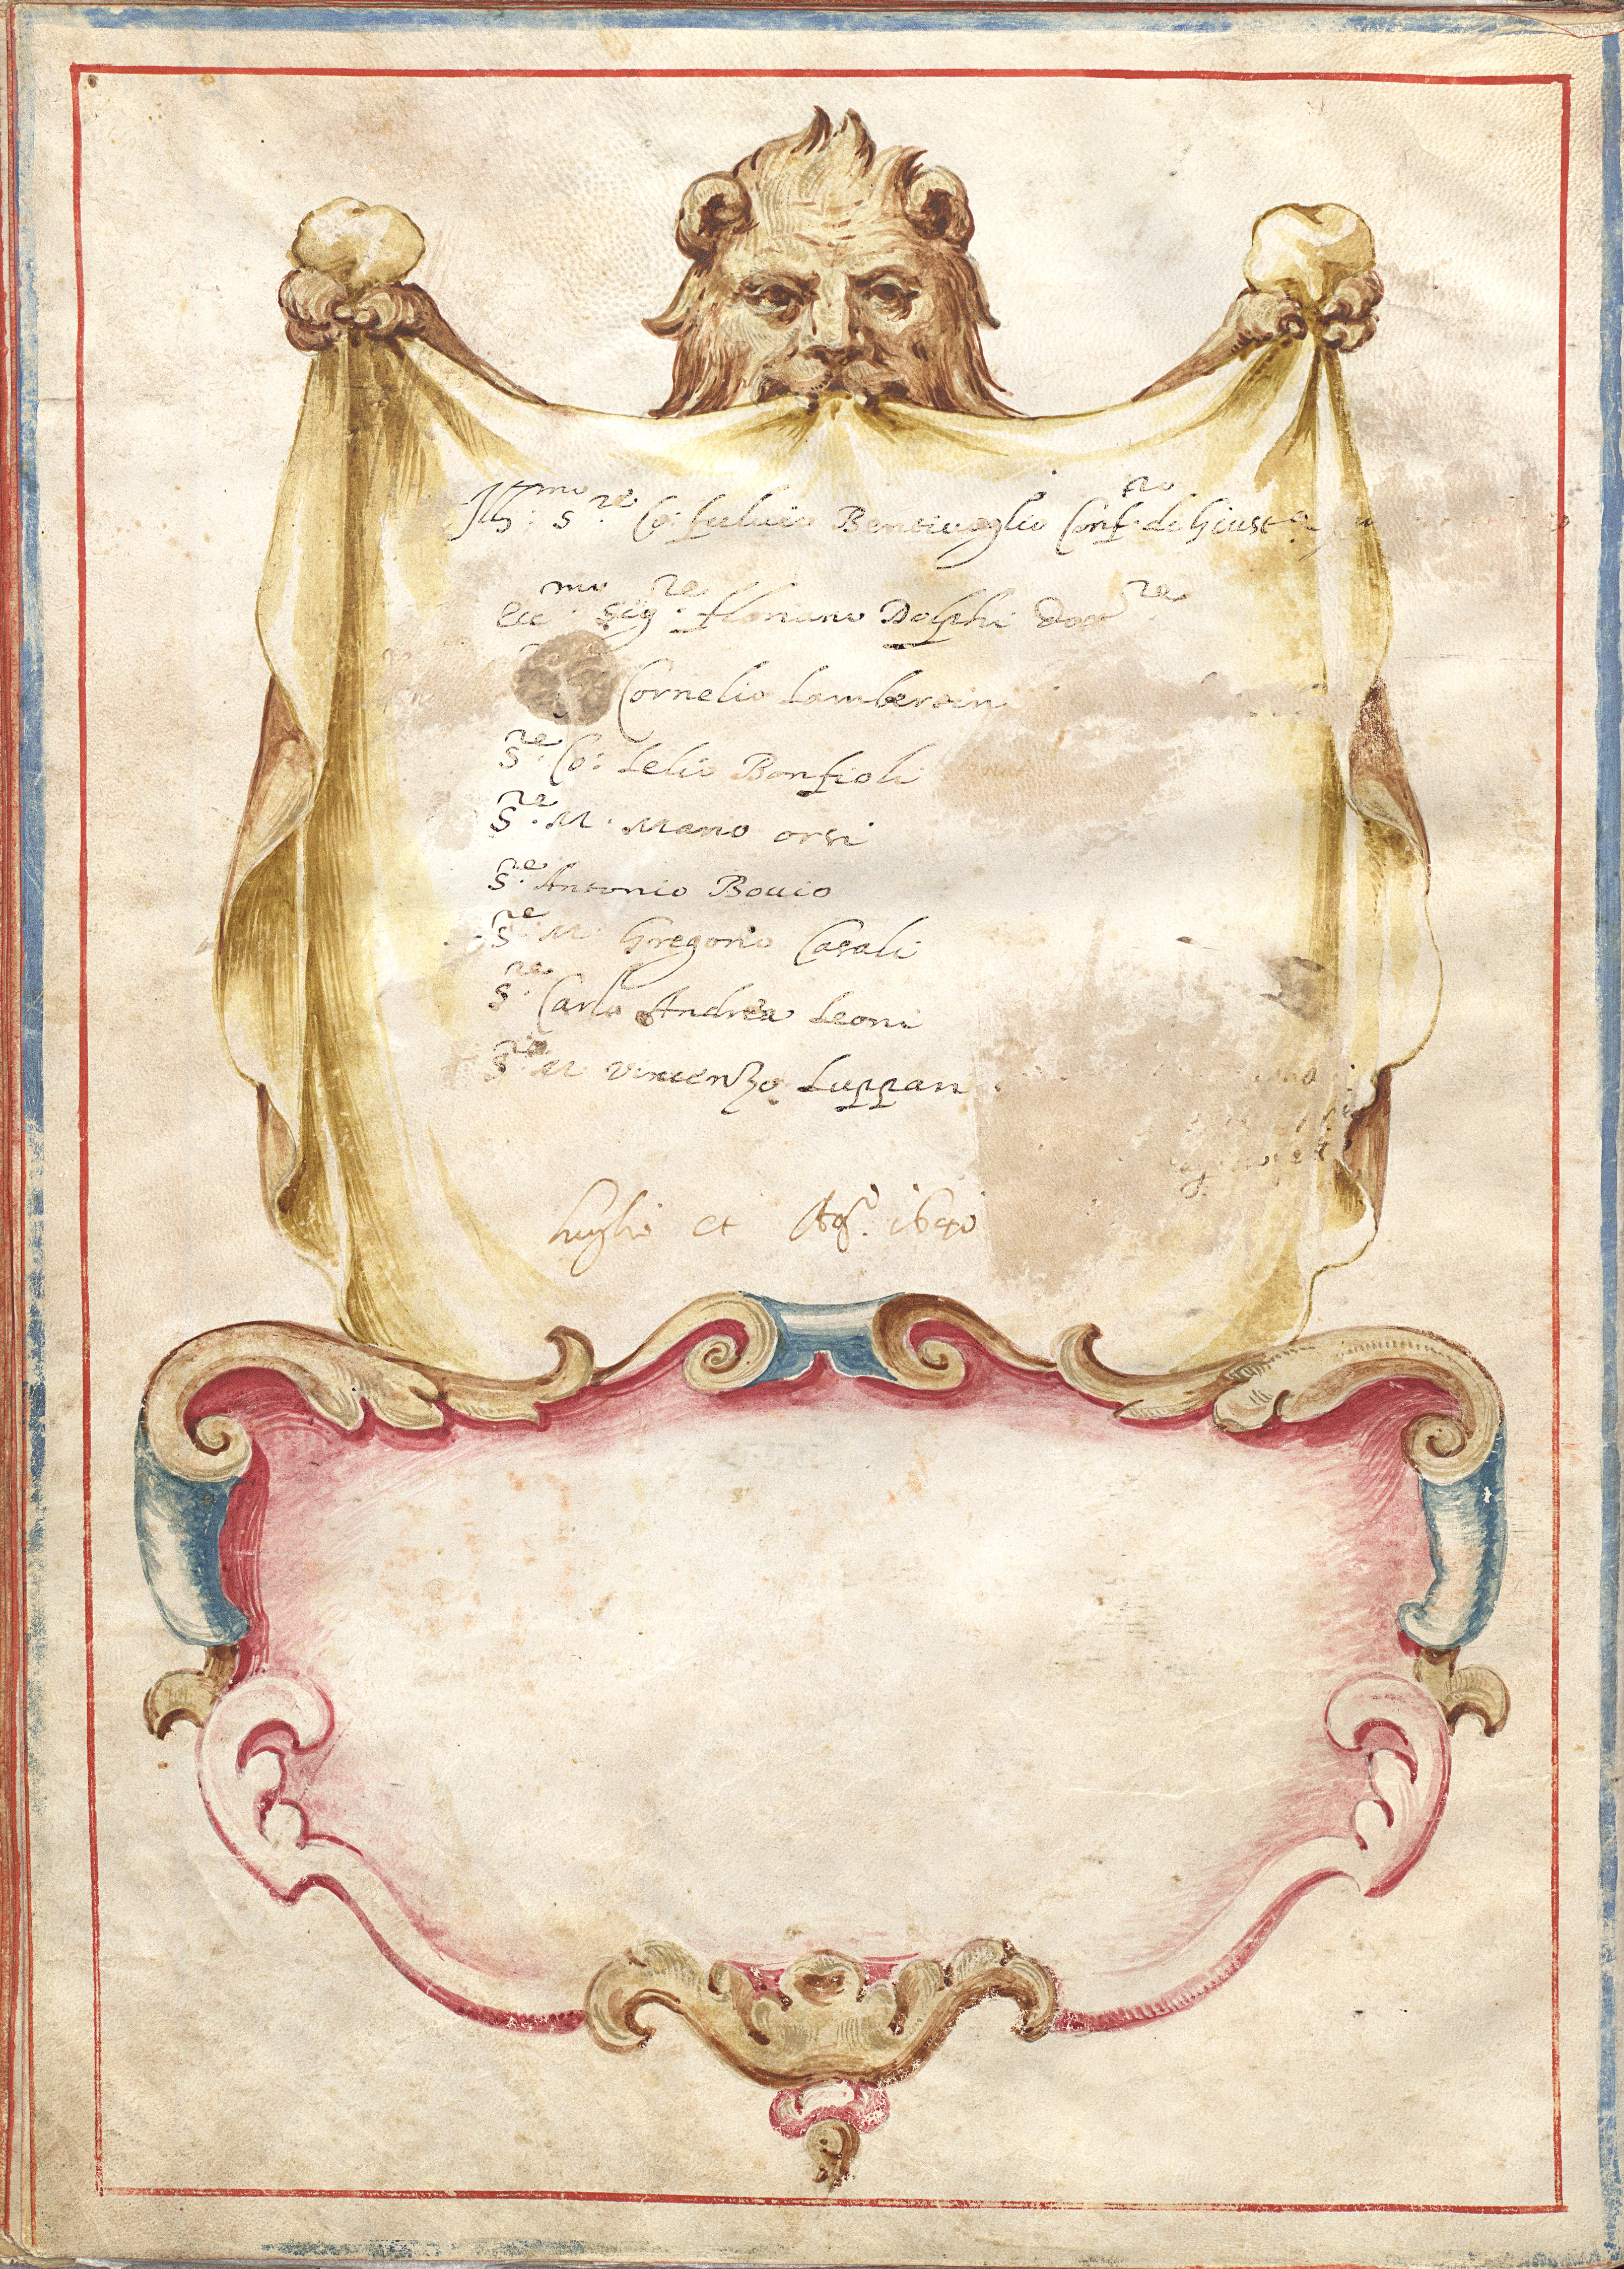 Ill:mo S:re Co: fuluio Bentiuoglio Conf:ro di Giust:a
Ecc:mo Sig:re floriano Dolphi Dott:re
Cornelio Lambertin
S:re Co: Lelio Bonfioli
S:re M: Mario orsi
S:re Antonio Bouio
S:re M: Gregorio Casali
S:re Carlo Andrea Leoni
S:re M Vincenzo Luppari
luglio et Ag:o 1640